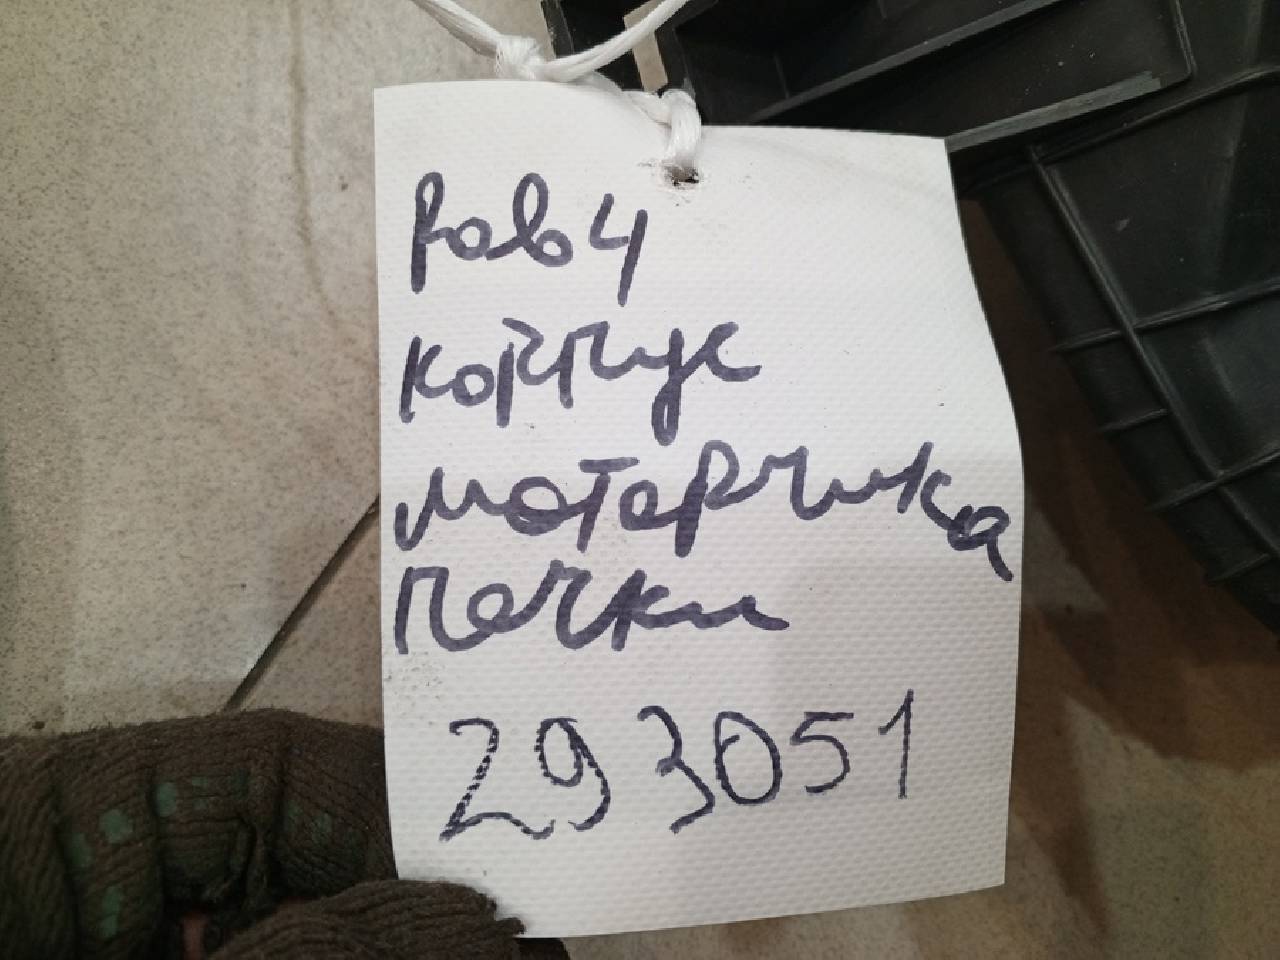 Рав 4
корпус
маторчика
печки
293051